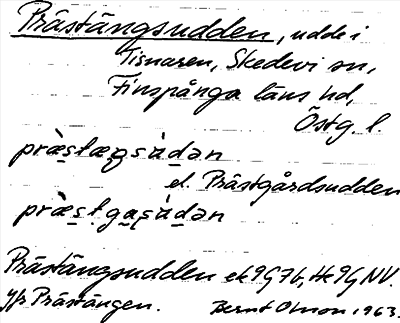 Prästängsudden, udde i
Tisnaren, Skedevi sn,
Finspånga läns hd,
Östg. l.
præ̀stæŋsùdən
el. Prästgårdsudden
præ̀stgasùdən
Prästängsudden ek 9G7b, Hk 9G NV.
Jfr Prästängen. Bernt Olsson 1963.